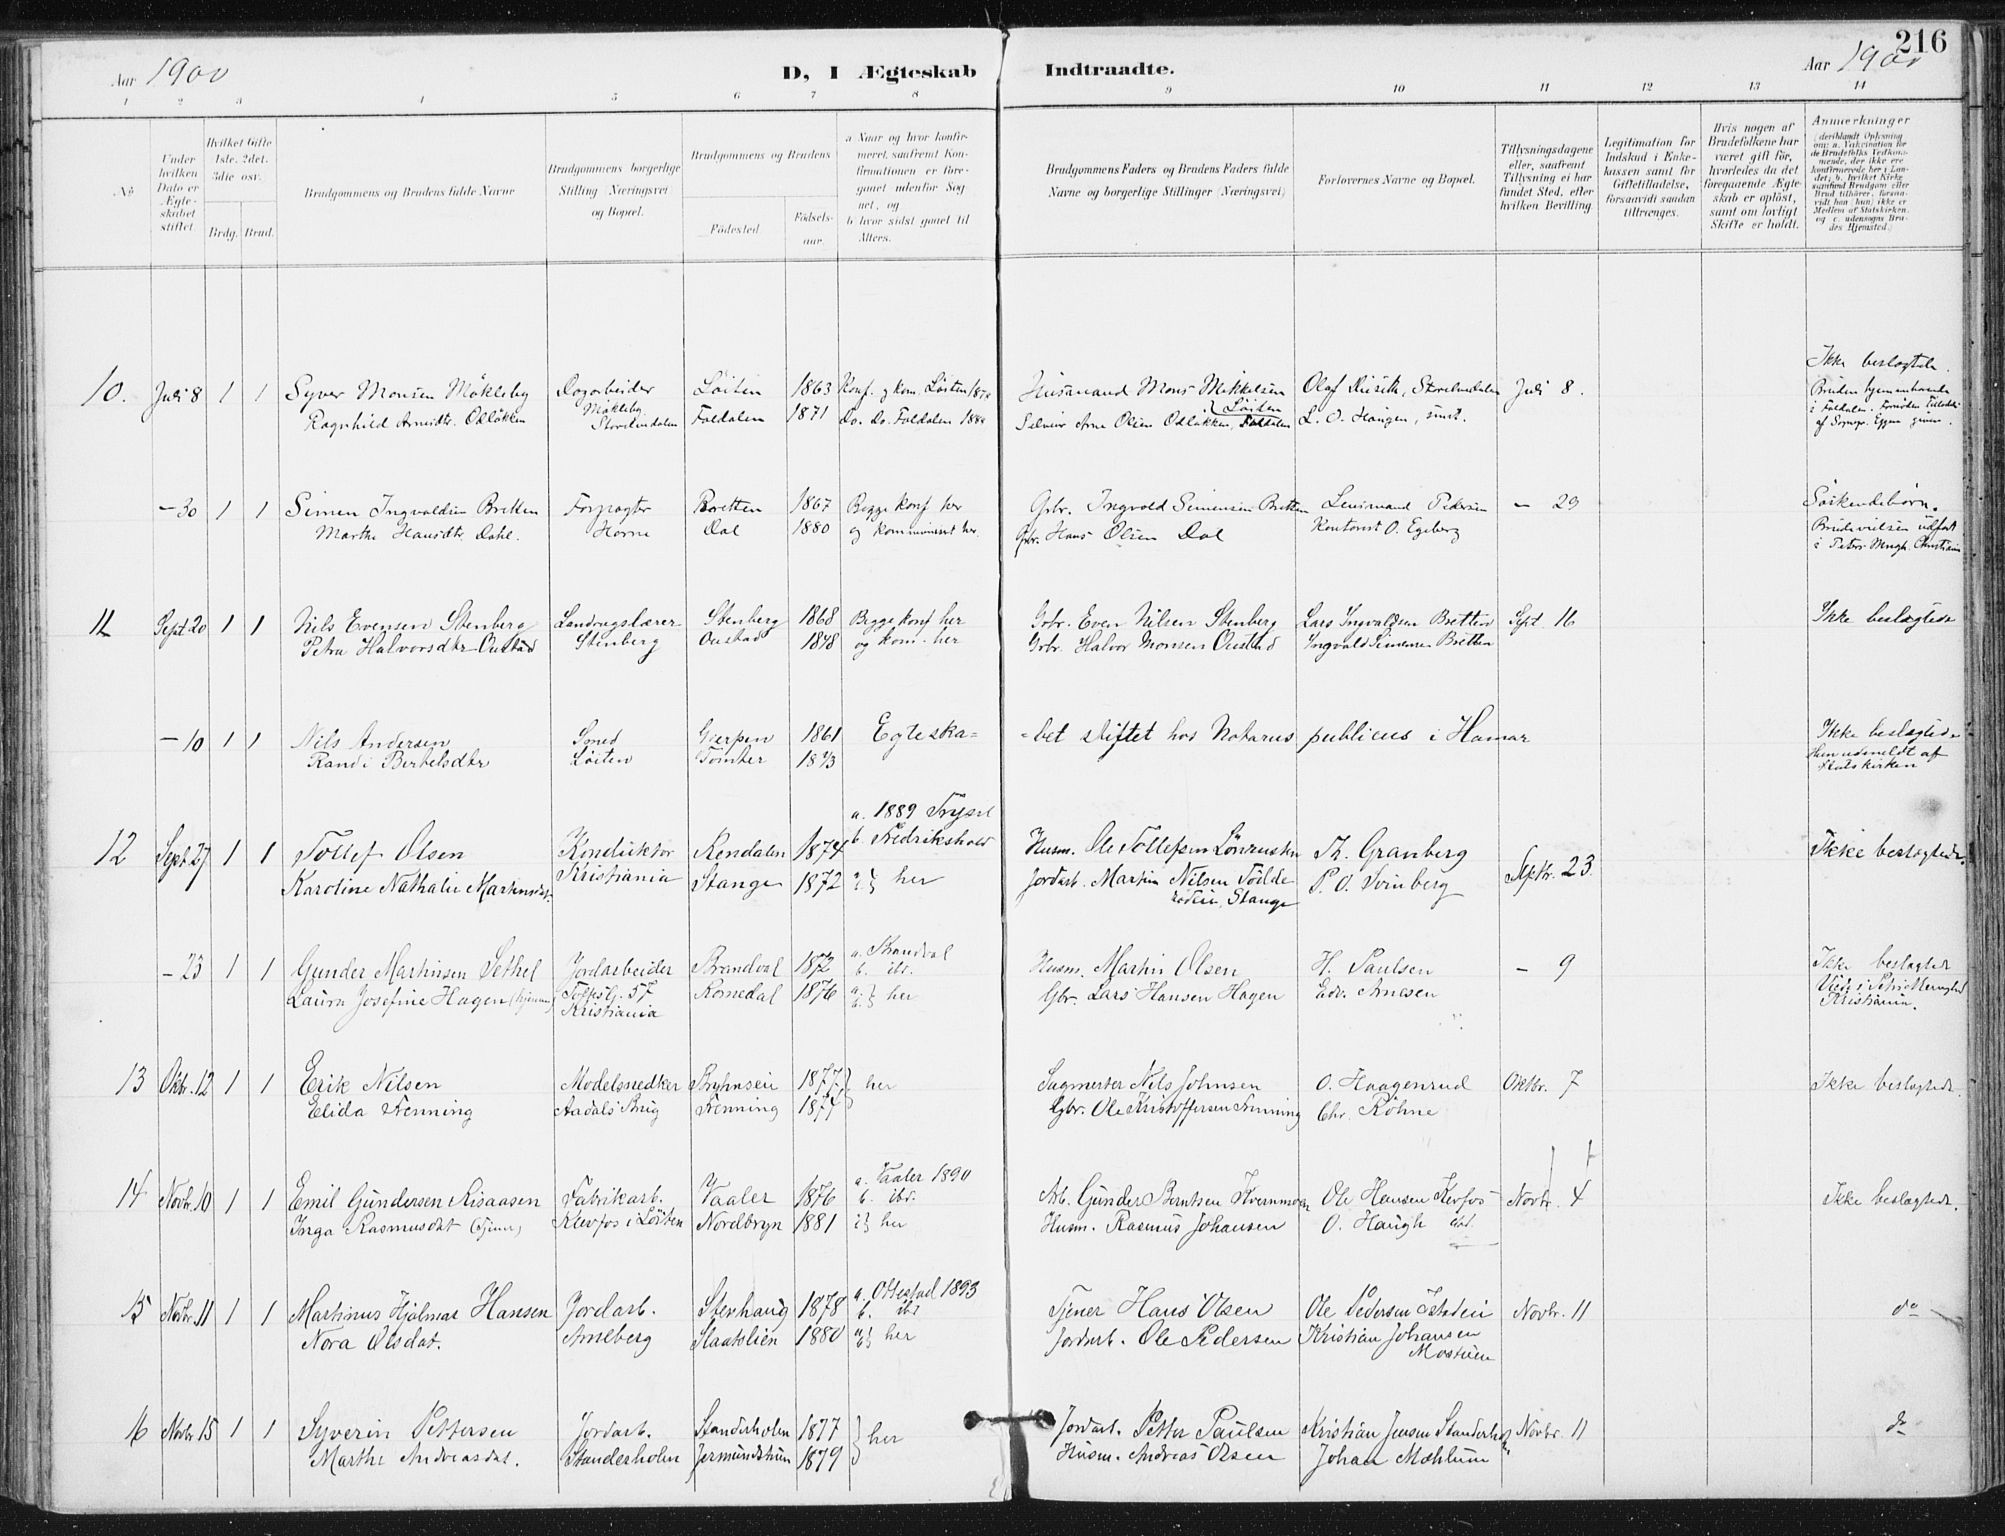 216
Aar 1900
D, I Ægteskab Indtraadte.
Aar 1900
1 2 3 4 5 6 7 8 9 10 11 12 13 14
No
Under hvilken Dato er Ægteskabet stiftet
Hvilket Gifte 1ste, 2det, 3die osv.
Brdg. Brud.
Brudgommens og Brudens fulde Navne
Brudgommens borgerlige Stilling (Næringsvei) og Bopæl.
Brudgommens og Brudens
Födested
Födselsaar.
a Naar og hvor konfirmeret, saafremt Konfirmationen er foregaaet udenfor Sognet, og
b hvor sidst gaaet til Alters.
Brudgommens Faders og Brudens Faders fulde Navne og borgerlige Stillinger (Næringsvei)
Forlovernes Navne og Bopæl.
Tillysningsdagene eller, saafremt Tillysning ei har fundet Sted, efter hvilken Bevilling.
Legitimation for Indskud i Enkekassen samt for Giftetilladelse, forsaavidt saadan tiltrænges.
Hvis nogen af Brudefolkene har været gift för, hvorledes da det foregaaende Ægteskab er oplöst, samt om lovligt Skifte er holdt.
Anmerkninger
10. Juli 8 1 1 Syver Monsen Mökleby Dagarbeider Löiten 1863 Konf. og kom. Löiten Husmand Mons Mikkelsen Olaf Storlundalen Juli 8. Ikke beslægtede.
Ragnhild Arnesdtr. Odlökken Mökleby Foldalen 1871 Do. Do. Foldalen Selveier Arne Olsen Odlökken, L. O. Haugen, smst.
— 30 1 1 Simen Ingvaldsen Bretten Forpagter Bretten 1867 Begge konf her Grbr. Ingvald Simensen Bretten Lensmand Pedersen — 29 Söskendebörn.
Marthe Hansdtr. Dahl. Horne Dal 1880 og kommuniceret her. Grbr. Hans Olsen Dal Kontorist O. Egeberg
11 Sept 20 1 1 Nils Evensen Stenberg Landbrugslærer Stenberg 1868 Begge konf her Grbr. Even Nilsen Stenberg Lars Ingvaldsen Bretten Sept. 16 Ikke beslægtede
Petra Halvorsdtr Oustad Stenberg Oustad 1878 og kom. her Grbr. Halvor Monsen Oustad Ingvald Simensen Bretten
— 10 1 1 Nils Andersen Smed Gjerpen 1861 Egteska= =bet stiftet hos Notarius publicus i Hamar Ikke beslægtede
Randi Bertelsdtr Löiten Tomter 1873 Hun udmeldt af Statskirken
12 Sept. 27 1 1 Tollef Olsen Konduktör Rendalen 1874 a. 1889 Trysil b. Fredrikshald Husm. Ole Tollefsen Th. Granberg Septbr. 23. Ikke beslægtede.
Karoline Nathalie Martinsdat. Kristiania Stange 1872 her Jordarb. Martin Nilsen P. O. Svinberg
Stange
— 23 1 1 Gunder Martinsen Sethel Jordarbeider Brandval 1872 a. Brandval b. ibd. Husm. Martin Olsen H. Paulsen — 9 Ikke beslægtede
Laura Josefine Hagen Toftesg. 57 Kristiania Romedal 1876 her Gbr. Lars Hansen Hagen Edv. Arnesen Kristiania.
13 Oktbr. 12 1 1 Erik Nilsen Modelsnedker Bryhnseie 1877 her Sagmester Nils Johnsen O. Haagenrud Oktbr. 7 Ikke beslægtede.
Elida Frenning Aadals Brug Frenning 1874 Gbr. Ole Kristoffersen Frenning Chr. Röhne
14 Novbr. 10 1 1 Emil Gundersen Risaasen Fabrikarb. Vaaler 1876 a. Vaaler 1890 b. ibd. Arb. Gunder Berntsen Kvernmoen Ole Hansen Klevfos Novbr. 4 Ikke beslægtede.
Inga Rasmusdat (tjener) Klevfos i Löiten Nordbryn 1881 her Husm. Rasmus Johansen O. Haugh ibd.
15 Novbr. 11 1 1 Martinus Hjalmar Hansen Jordarb. Stenhaug 1878 a. Ottestad 1893 b. ibd Tjener Hans Olsen Ole Pedersen Novbr. 11 do
Nora Olsdat. Arneberg Slaatslien 1880 her Jordarb. Ole Pedersen Kristian Johansen
16 Novbr. 15 1 1 Syverin Pettersen Jordarb. Standerholen 1877 her Jordarb. Petter Paulsen Kristian Jensen Standerholen Novbr. 11 do
Marthe Andreasdat. Standerholen 1879 Husm. Andreas Olsen Johan Mæhlum